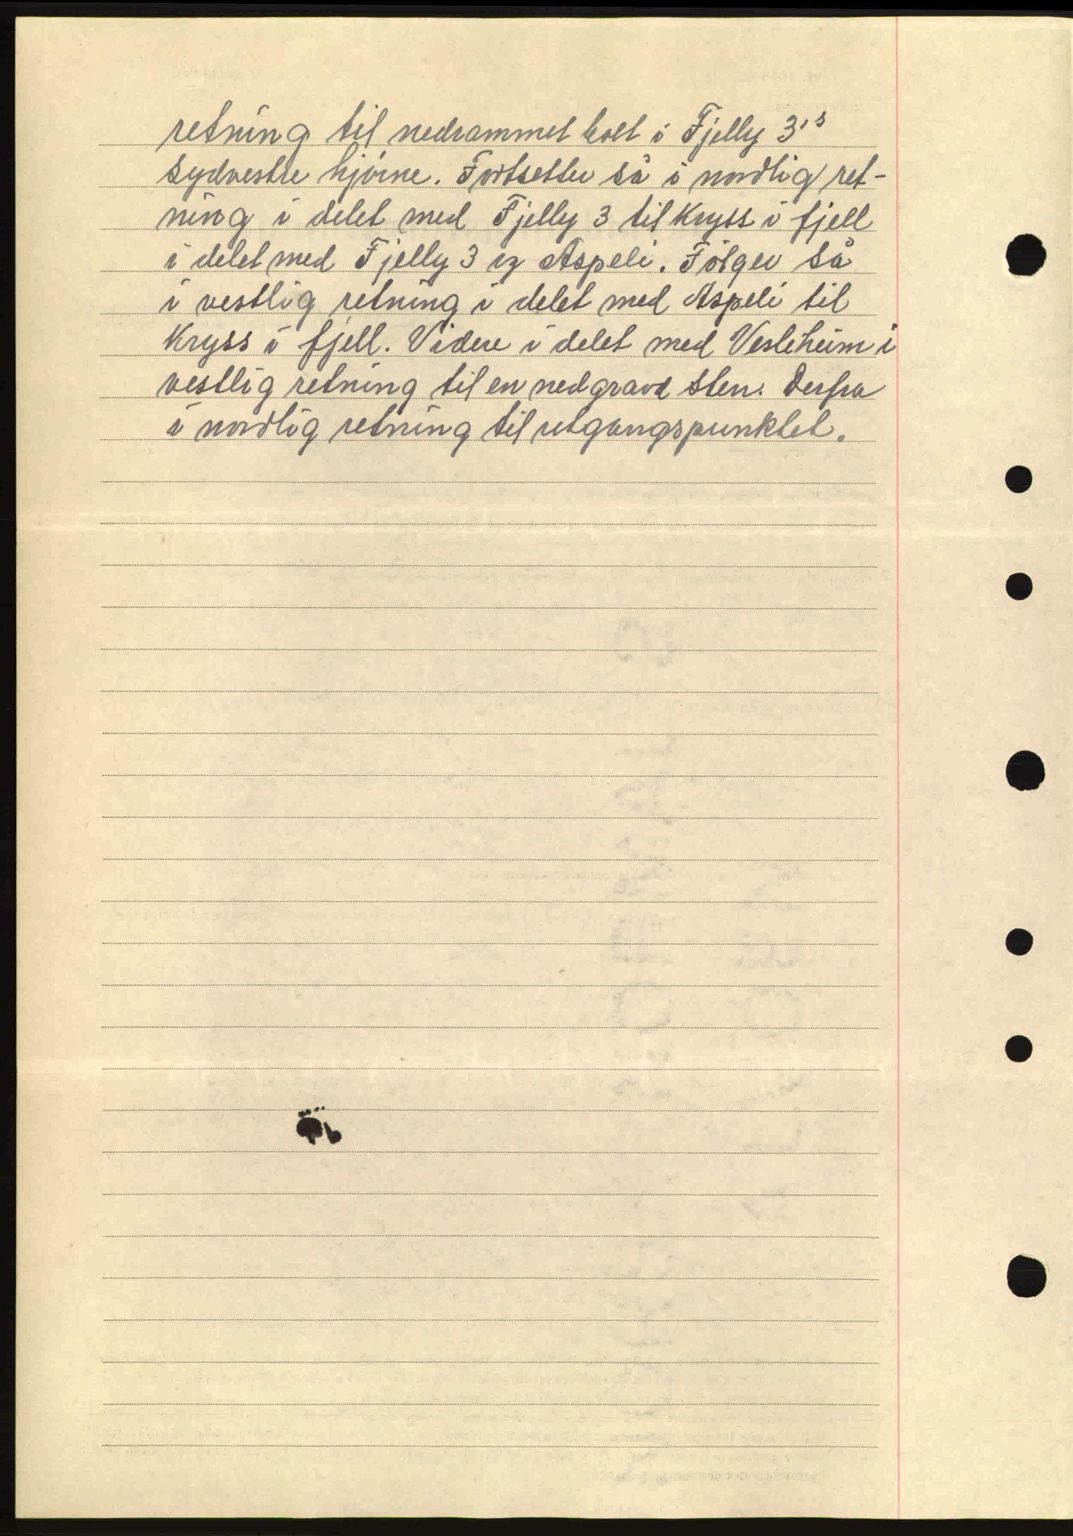 retning til nedrammet bolt i Fjelly 3's
sydvestre hjørne. Fortsetter så i nordlig ret-
ning i delet med Fjelly 3 til Kryss i fjell
i delet med Fjelly 3 og Aspeli. Følger så
i vestlig retning i delet med Aspeli til
Kryss i fjell. Videre i delet med Vesleheim i
vestlig retning til en nedgravd sten. Derfra
i nordlig retning til utgangspunktet.